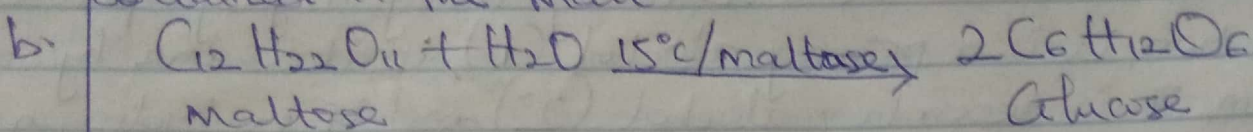 b. C12 H22 O11 + H2O 15°c/maltase→ 2C6H12O6
Maltose Glucose